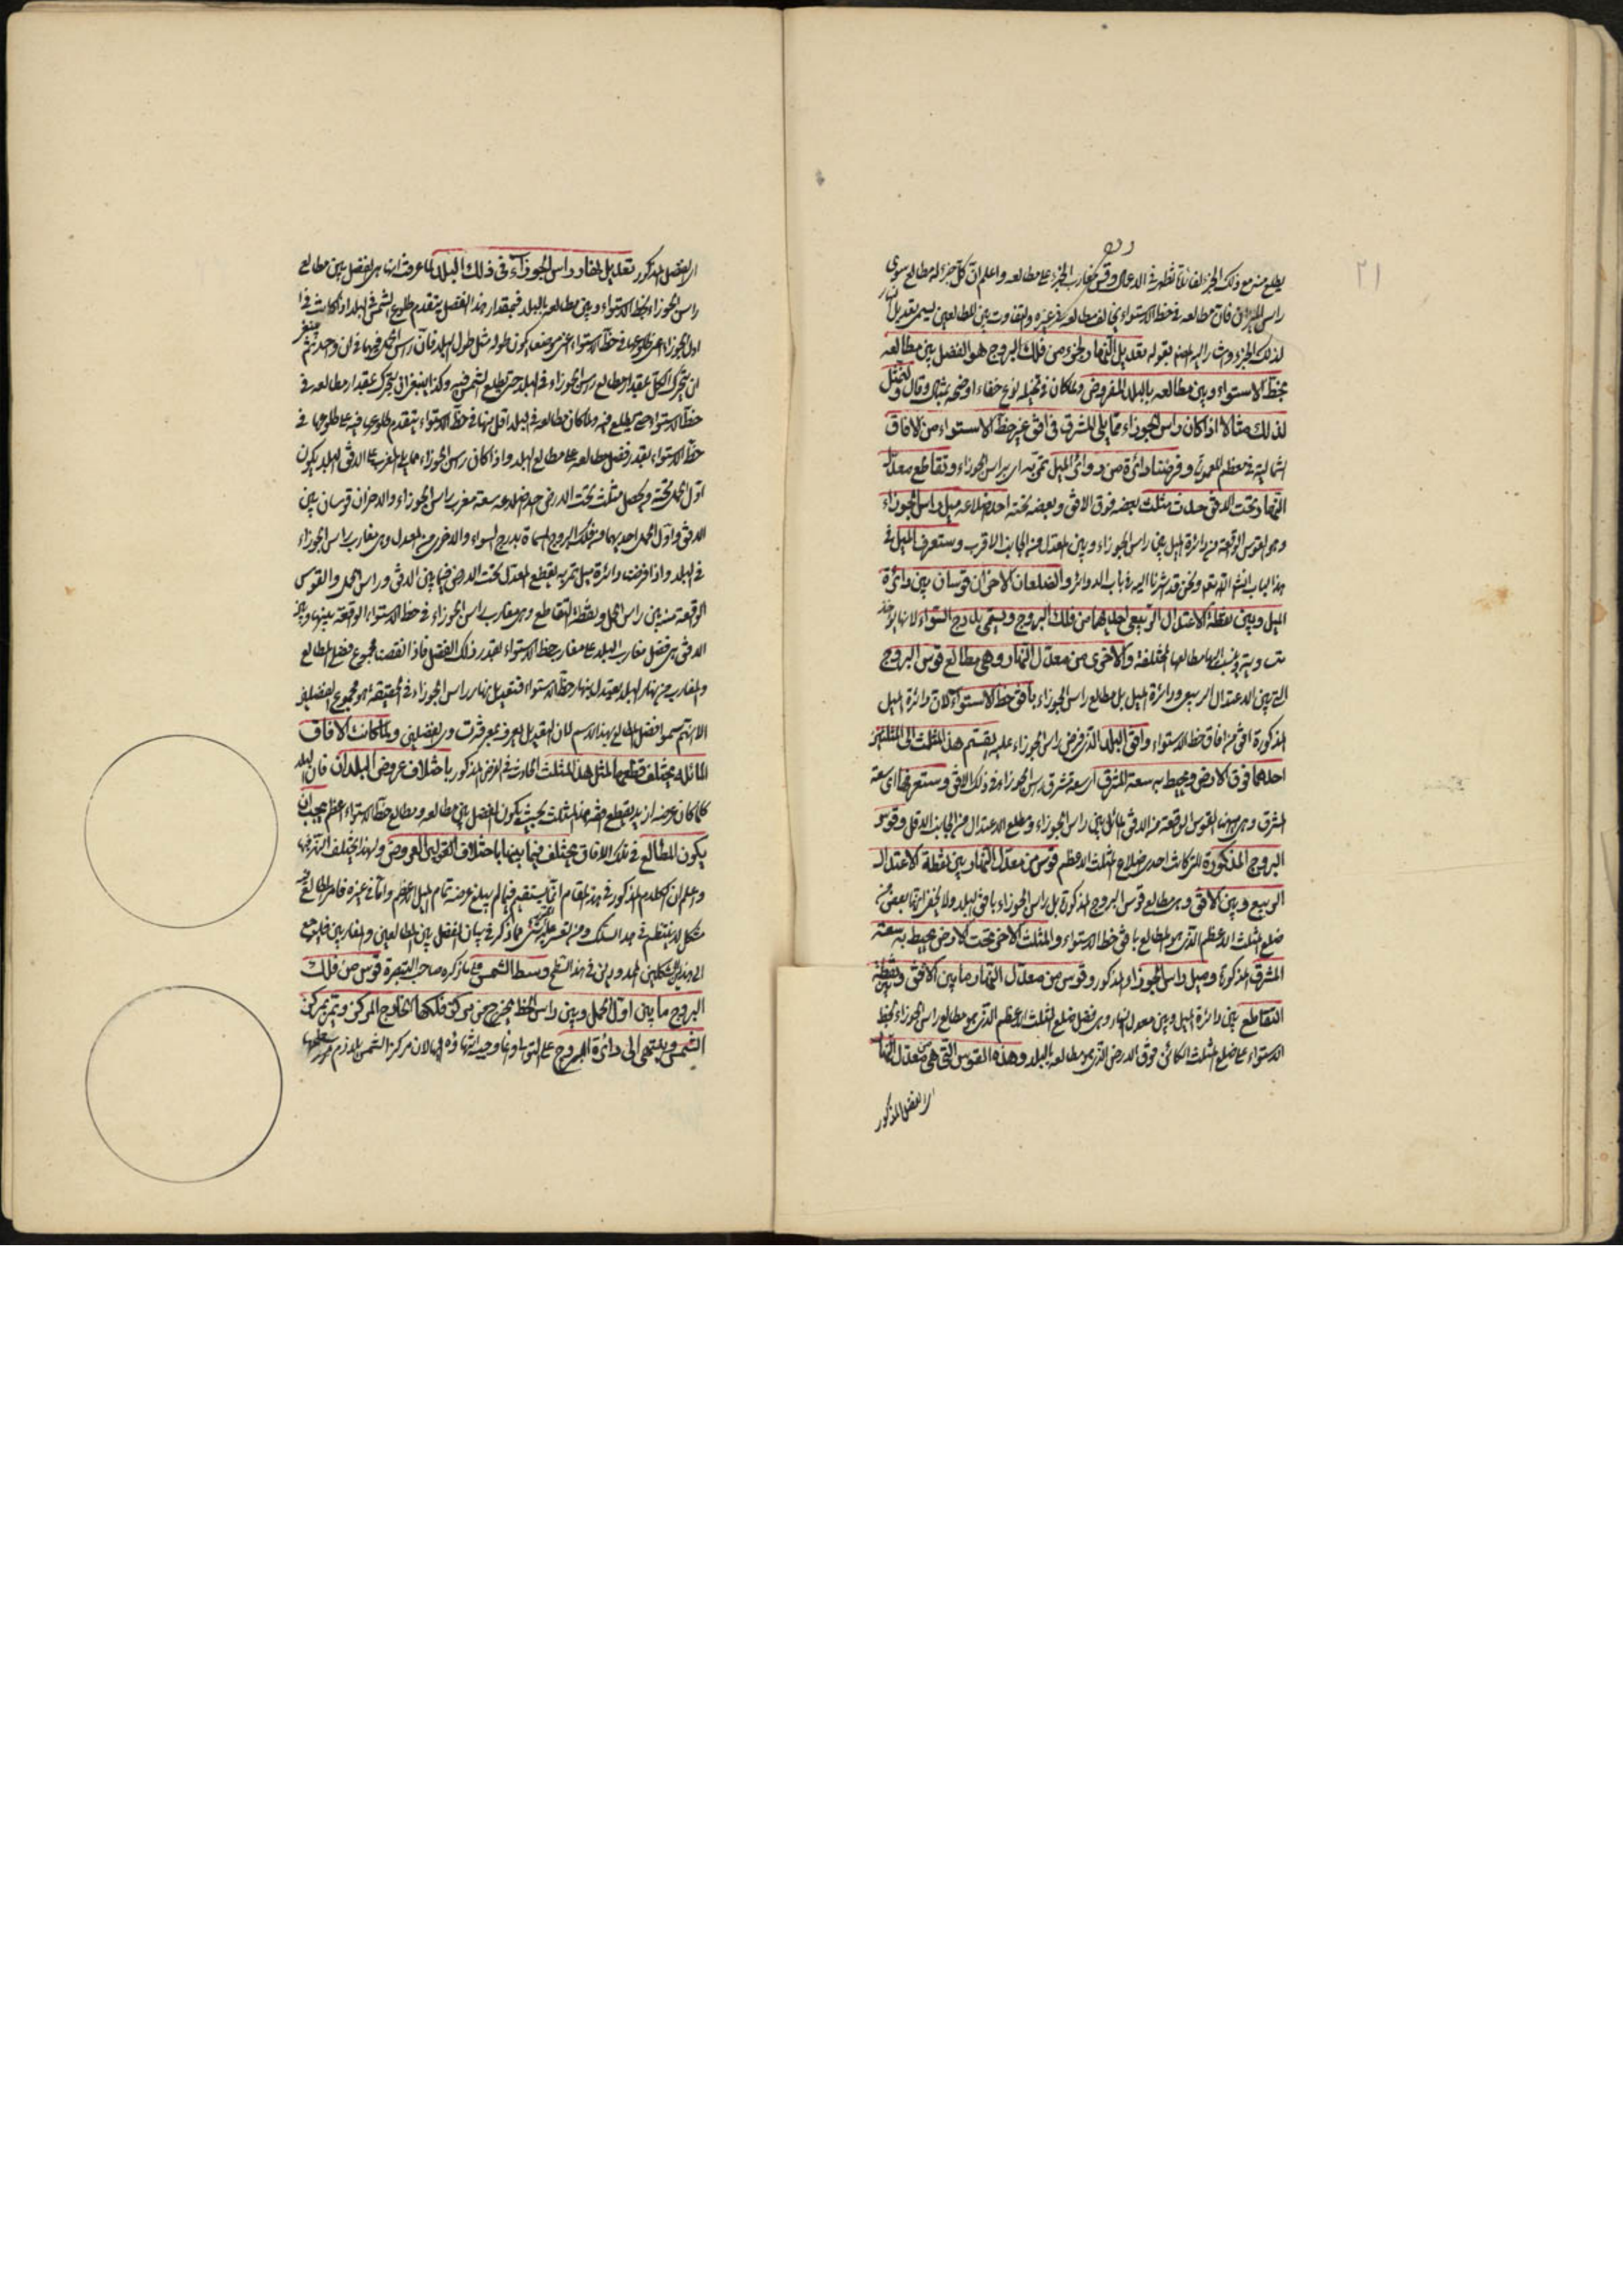 ٢١
يطلع منه مع ذلك الجزء وقس مغارب الجزء على مطالعه واعلم ان كل جزء له مطالع سوى
راس فان مطالعه في خط الاستواء يخالف مطالعه في غيره والتفاوت بين المطالعين يسمى تعديل النهار
لذلك الجزء واشار اليه المصنف بقوله تعديل النهار لجزء من فلك البروج هو الفضل بين مطالعه
بخط الاستواء وبين مطالعه بالبلد المفروض ولما كان في تخيله نوع خفاء اوضحه بمثال وقال ولنمثل
لذلك مثالا اذا كان راس الجوزاء مما يلي المشرق في افق غير خط الاستواء من الافاق
الشمالية في معظم المعمورة وفرضنا دائرة من دوائر الميل تمر به اي براس الجوزاء وتقاطع معدل
النهار تحت الافق حدث مثلث بعضه فوق الافق وبعضه تحته احد اضلاعه ميل راس الجوزاء
وهو القوس الواقعة من دائرة الميل بين راس الجوزاء وبين المعدل من الجانب الاقرب وستعرف الميل في
هذا الباب ان شاء الله تعالى ونحن قد اشرنا اليه في باب الدوائر والضلعان الاخران قوسان بين دائرة
الميل وبين نقطة الاعتدال الربيعي احديهما من فلك البروج ويسمى بدرج السواء لانها
والاخرى من معدل النهار وهي مطالع قوس البروج
التي بين الاعتدال الربيعي ودائرة الميل بل مطالع راس الجوزاء بافق خط الاستواء لان دائرة الميل
المذكورة افق من افاق خط الاستواء وافق البلد الذي فرض راس الجوزاء عليه يقسم هذا المثلث الى المثلثين
احدهما فوق الارض ويحيط به سعة المشرق اي سعة مشرق راس الجوزاء في ذلك الافق وستعرفها اي سعة
المشرق وهي القوس الواقعة من الافق بين راس الجوزاء ومطلع الاعتدال من الجانب الاقل وقوس
البروج المذكورة التي كانت احدى اضلاع المثلث الاعظم وقوس من معدل النهار بين نقطة الاعتدال
الربيع وبين الافق وهي مطالع قوس البروج المذكورة بل راس الجوزاء بافق البلد ولا يخفى انها بعض من
ضلع المثلث الاعظم الذي هو المطالع بافق خط الاستواء والمثلث الاخر تحت الارض يحيط به سعة
المشرق المذكورة وميل راس الجوزاء المذكور وقوس من معدل النهار ما بين الافق ونقطة
التقاطع بين دائرة الميل وبين معدل النهار وهي فضل ضلع المثلث الاعظم الذي هو مطالع راس الجوزاء بخط
الاستواء على ضلع المثلث الكائن فوق الارض الذي هو مطالعه بالبلد وهذه القوس التي هي من معدل النهار
اي الفضل المذكور
اي الفضل المذكور تعديل نهار راس الجوزاء في ذلك البلد لما عرفت انها هي الفضل بين مطالع
راس الجوزاء بخط الاستواء وبين مطالعه بالبلد فبمقدار هذا الفضل يتقدم طلوع الشمس في البلد اذا كانت في
اول الجوزاء على طلوعها في خط الاستواء اعني موضعه يكون طوله مثل طول البلد فان راس الحمل فيهما في آن واحد ثم ينبغي
ان يتحرك الكل بمقدار مطالع راس الجوزاء في البلد حتى يطلع الشمس فيه وكذا ينبغي ان يتحرك بمقدار مطالعه في
خط الاستواء حتى يطلع فيه ولما كان مطالعه في البلد اقل منها في خط الاستواء يتقدم طلوعها فيه على طلوعها في
خط الاستواء بقدر فضل مطالعه على مطالع البلد واذا كان راس الجوزاء مما يلي المغرب على الافق البلد يكون
اول الحمل تحته ويحصل مثلث تحت الارض احد اضلاعه سعة مغرب راس الجوزاء والاخران قوسان بين
الافق واول الحمل احديهما من فلك البروج المسماة بدرج السواء والاخرى من المعدل وهي مغارب راس الجوزاء
في البلد واذا فرضنا دائرة ميل تمر به يقطع المعدل تحت الارض فيما بين الافق وراس الحمل والقوس
الواقعة منه بين راس الحمل ونقطة التقاطع وهي مغارب راس الجوزاء في خط الاستواء والواقعة بينها وبين
الافق هي فضل مغارب البلد على مغارب خط الاستواء بقدر ذلك الفضل فاذا مجموع فضلي المطالع
والمغارب من نهار البلد نهار خط الاستواء فتعديل نهار راس الجوزاء في الحقيقة هو مجموع الفضلين
الا انهم سموا فضل المطالع بهذا الاسم ولما كانت الافاق
المائلة يختلف قطعها لمثل هذا المثلث الحادث في الفرض المذكور باختلاف عروض البلدان فان البلد
كلما كان عرضه ازيد يقطع افقه هذا المثلث بحيث يكون الفضل بين مطالعه ومطالع خط الاستواء اعظم يجب ان
يكون المطالع في تلك الافاق يختلف فيما بينها باختلاف العروض ولهذا يختلف
واعلم ان الكلام المذكور في هذا المقام انما يستقيم فيما لم يبلغ عرضه تمام الميل الاعظم واما في غيره فامر المطالع فيه
مشكل لا ينتظم في هذا السلك ومما ذكر في بيان الفضل بين المطالعين والمغاربين فليرجع
الى هذين الشكلين المحدودين في هذا السطح وسط الشمس على ما ذكره صاحب التبصرة قوس من فلك
البروج ما بين اول الحمل وبين راس الخط يخرج من مركز فلكها الخارج المركز ويمر بمركز
الشمس وينتهي الى دائرة البروج